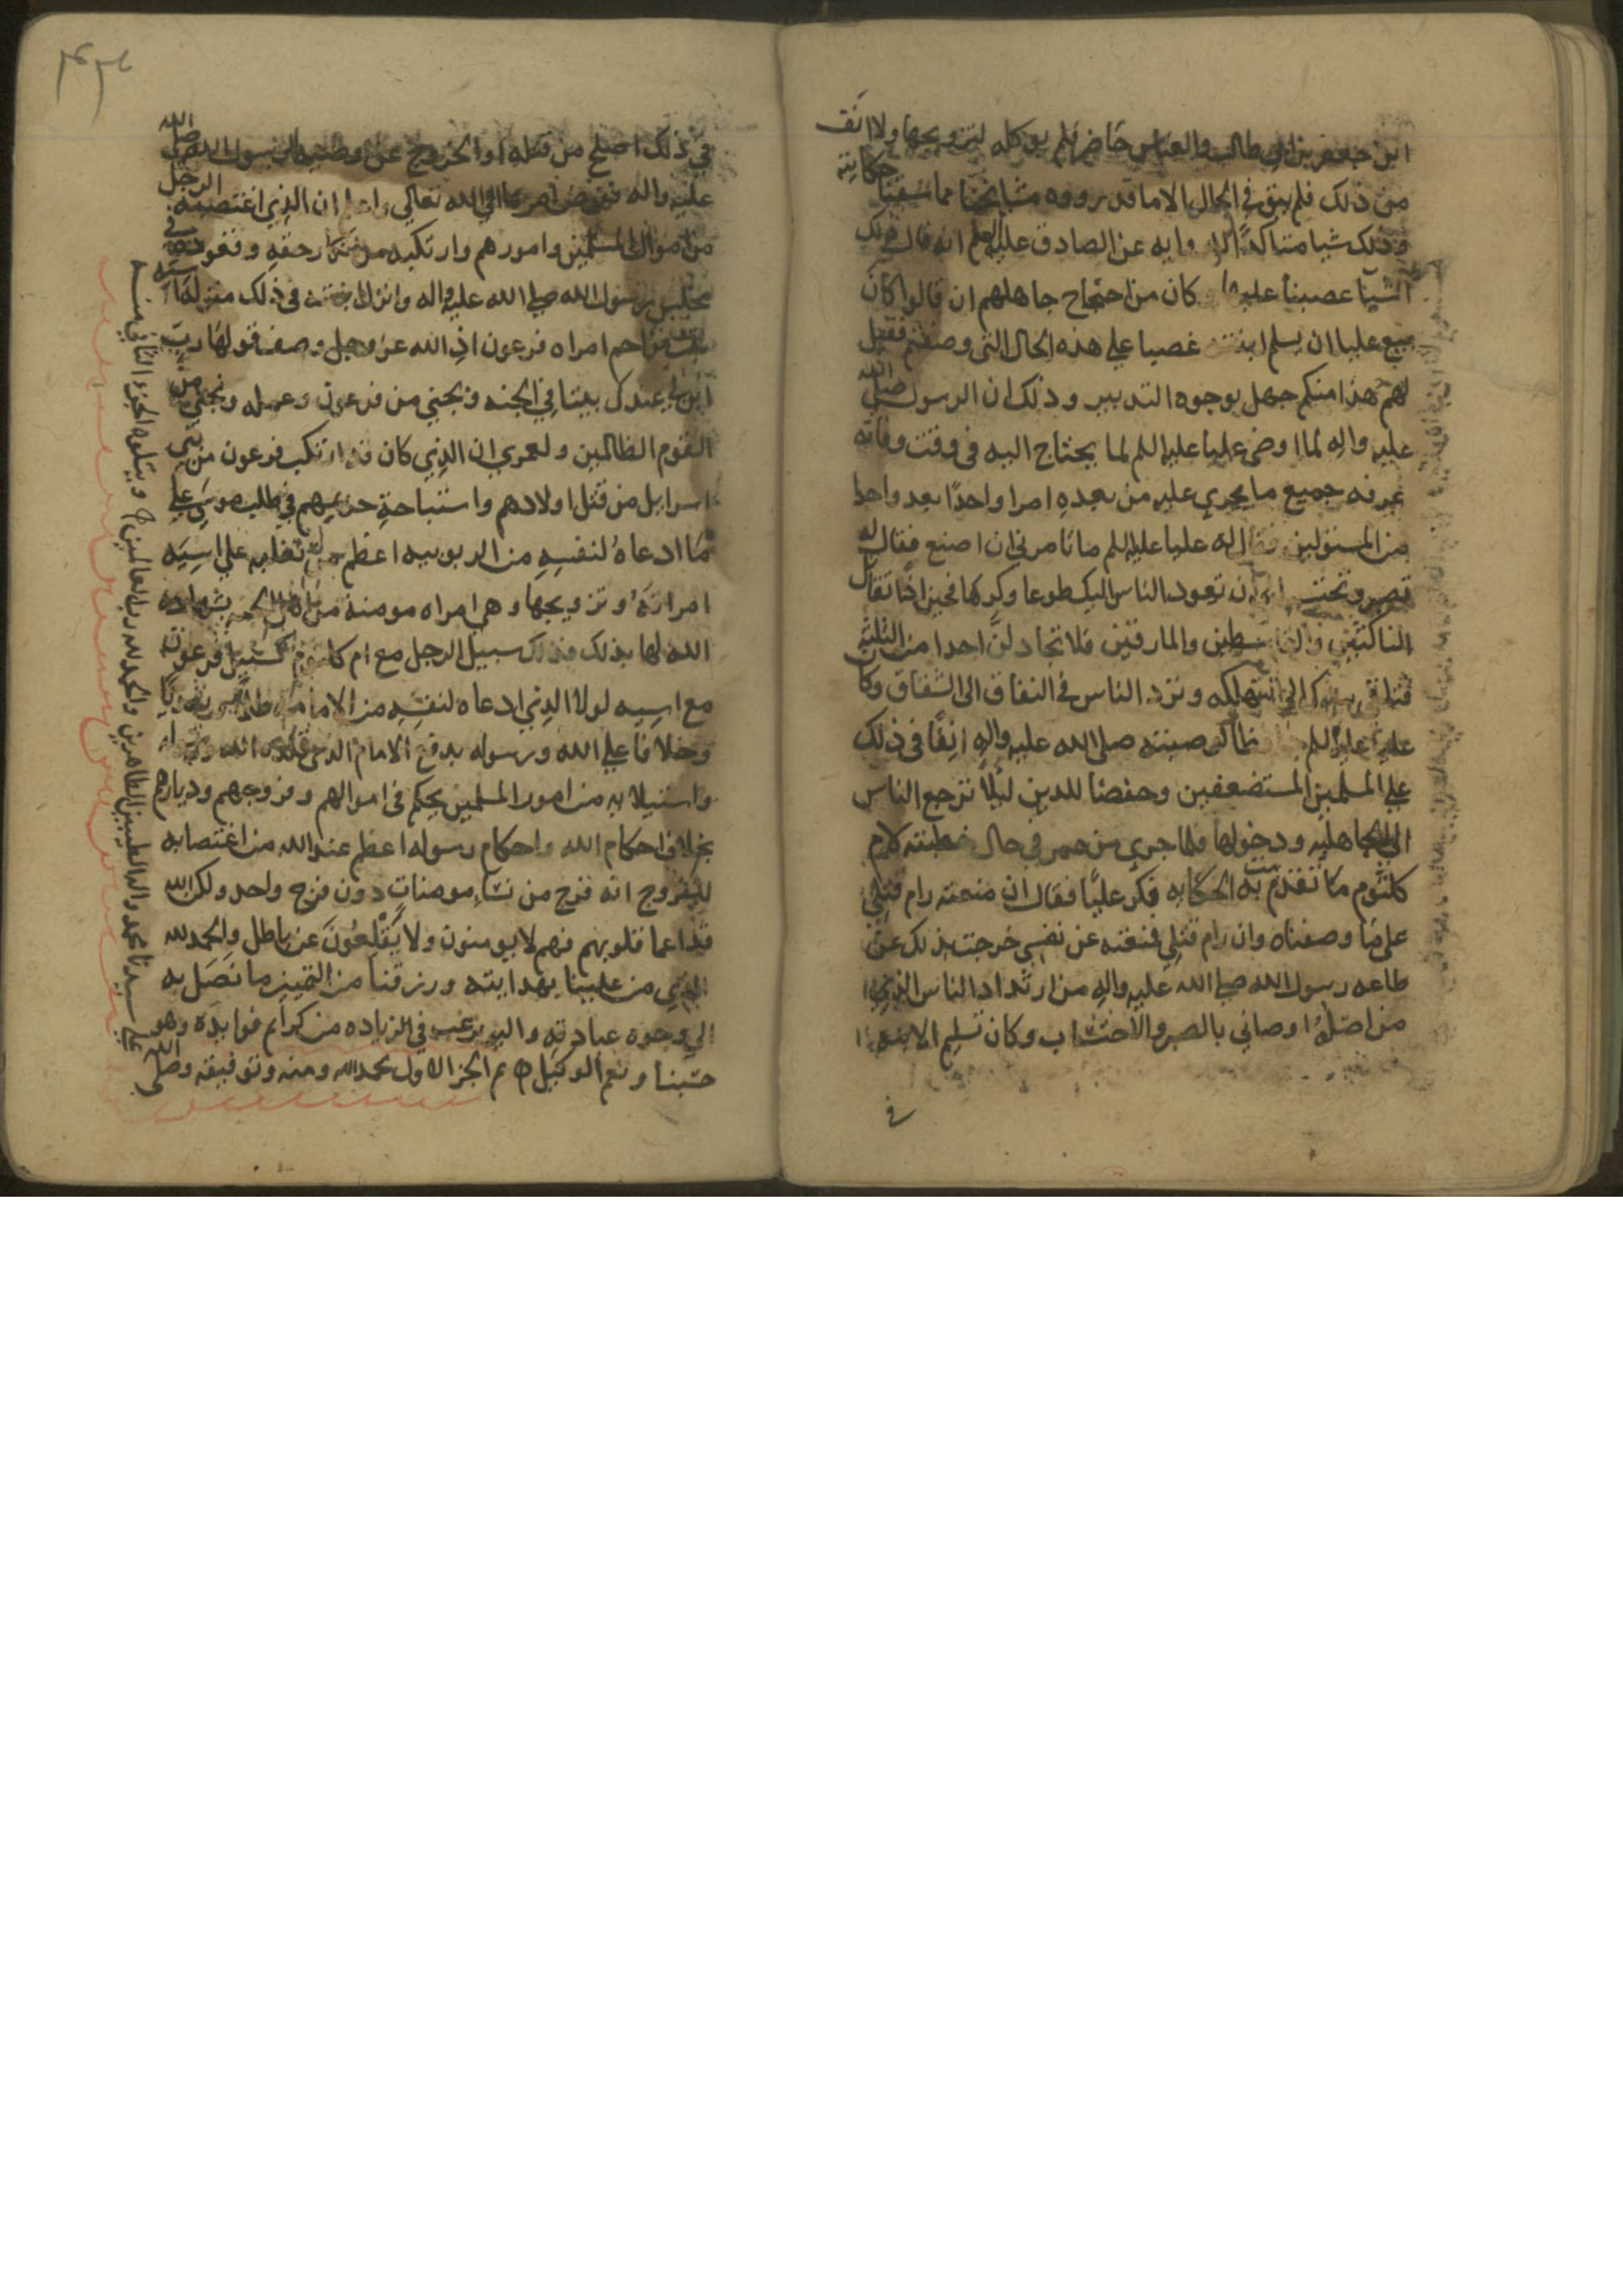 ابن جعفر بن ابي طالب والعباس حاضر فلم يوكله لتزويجها ولا انف
من ذلك فلم يبق في الحال الا ما قد رووه مشايخنا مما سقنا حكايته
وذلك شيا متاكدا الرواية عن الصادق عليه السلم انه قال ذلك
عصبنا عليه كان من احتجاج جاهلهم ان قالوا كان
عليا ان يسلم ابنته غصبا علي هذه الحال التي وصفتم فقيل
لهم هذا منكم جهل بوجوه التدبير وذلك ان الرسول صلي الله
عليه واله لما اوصي عليا عليه السلم لما يحتاج اليه في وقت وفاته
عرفه جميع ما يجري عليه من بعده امرا واحدا بعد واحد
من المستولين فقال له عليا عليه السلم ما تامرني ان اصنع فقال له
تصبر وتحتسب ان تعود الناس اليك طوعا وكرها فحينا اذا تقاتل
الناكثين والقاسطين والمارقين فلا تجادلن احدا من الثلثه
الي التهلكه وترد الناس في النفاق الي الشقاق وكان
عليا عليه السلم لوصيته صلي الله عليه واله انفا في ذلك
علي المسلمين المستضعفين وحفضا للدين ليلا ترجع الناس
الي الجاهليه ودخولها فلما جري من عمر في حال خطبته لام
كلثوم ما تقدمت به الحكايه فكر عليا فقال ان منعته رام قتلي
علي ما وصفناه وان رام قتلي فمنعته عن نفسي خرجت بذلك عن
طاعه رسول الله صلي الله عليه واله من ارتداد الناس الذي
من اصله اوصاني بالصبر والاحتساب وكان تسليم الابنه
في
في ذلك اصلح من قتله او الخروج عن وصيه الرسول صلي الله
عليه واله ففوض امرها الي الله تعالي واعلم ان الذي اغتصبه الرجل
من اموال المسلمين وامورهم وارتكبه من انكار حقه وقعوده في
مجلس رسول الله صلي الله عليه واله وانزل ابنته في ذلك منزله اسيه
بنت مزاحم امراه فرعون اذ الله عز وجل وصف قولها رب
ابن لي عندك بيتا في الجنه ونجني من فرعون وعمله ونجني من
القوم الظالمين ولعمري ان الذي كان قد ارتكب فرعون من بني
اسرايل من قتل اولادهم واستباحة حريمهم في طلب موسي علي
ما ادعاه لنفسه من الربوبيه اعظم من تغلبه علي اسيه
امراته وتزويجها وهي امراه مومنة من اهل الجنه بشهاده
الله لها بذلك وكذلك سبيل الرجل مع ام كلثوم كسبيل فرعون
مع اسيه لولا الذي ادعاه لنفسه من الامامه ظلما
وخلافا علي الله ورسوله بدفع الامام الذي
واستيلايه من امور المسلمين يحكم في اموالهم وفروجهم وديارهم
بخلاف احكام الله واحكام رسوله اعظم عند الله من اغتصابه
للفروج انه فرج من نسا مومنات دون فرج واحد ولكن الله
قد اعما قلوبهم فهم لا يومنون ولا يقلعون عن باطل والحمد لله
الذي من علينا بهدايته ورزقنا من التمييز ما نصل به
الي وجوه عبادته واليه نرغب في الزياده من كرايم فوايده وهو
حسبنا ونعم الوكيل تم الجز الاول بحمد الله ومنه وتوفيقه وصلي الله
علي سيدنا محمد واله الطيبين الطاهرين والحمد لله رب العالمين ويتلوه الجزء الثاني منه